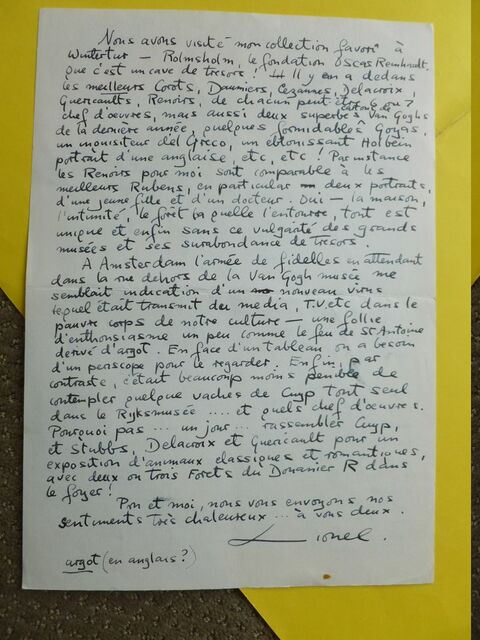 Nous avons visité mon collection favori à
Wintertur – Rolmsholm, le fondation Oscar Reinhardt.
Que c'est un cave de tresors! Il y en a dedans
les meilleurs Corots, Daumiers, Cezannes, Delacroix,
Guericaults, Renoirs, de chacun peut être 6 ou 7
chef d'œuvres, mais aussi deux superbes Van Goghs
de la dernière année, quelques formidables Goyas,
un inquisiteur del Greco, un etonissant Holbein
portrait d'une anglaise, etc, etc! Par instance
les Renoirs pour moi sont comparable à les
meilleurs Rubens, en particular deux portraits,
d'une jeune fille et d'un docteur. Oui – la maison,
l'intimité, le forêt la quelle l'entoure, tout est
unique et enfin sans ce vulgarté des grands
musées et ses surabondance de tresors.
A Amsterdam l'armée de fidelles en attendant
dans la rue dehors de la Van Gogh musée me
semblait indication d'un nouveau virus
lequel était transmit du media, T.V. etc dans le
pauvre corps de notre culture – une follie
d'enthousiasme un peu comme le feu de St Antoine
derivé d'argot. En face d'un tableau on a besoin
d'un periscope pour le regarder. Enfin, par
contraste, c'était beaucoup moins penible de
contempler quelque vaches de Cuyp tout seul
dans le Rijksmusée .... et quels chef d'œuvres.
Pourquoi pas ... un jour ... rassembler Cuyp,
et Stubbs, Delacroix et Guericault pour un
exposition d'animaux classiques et romantiques,
avec deux ou trois Forets du Douanier R dans
le foyer!
et moi, nous vous envoyons nos
sentiments très chaleureux ... à vous deux.
Lionel.
argot (en anglais?)